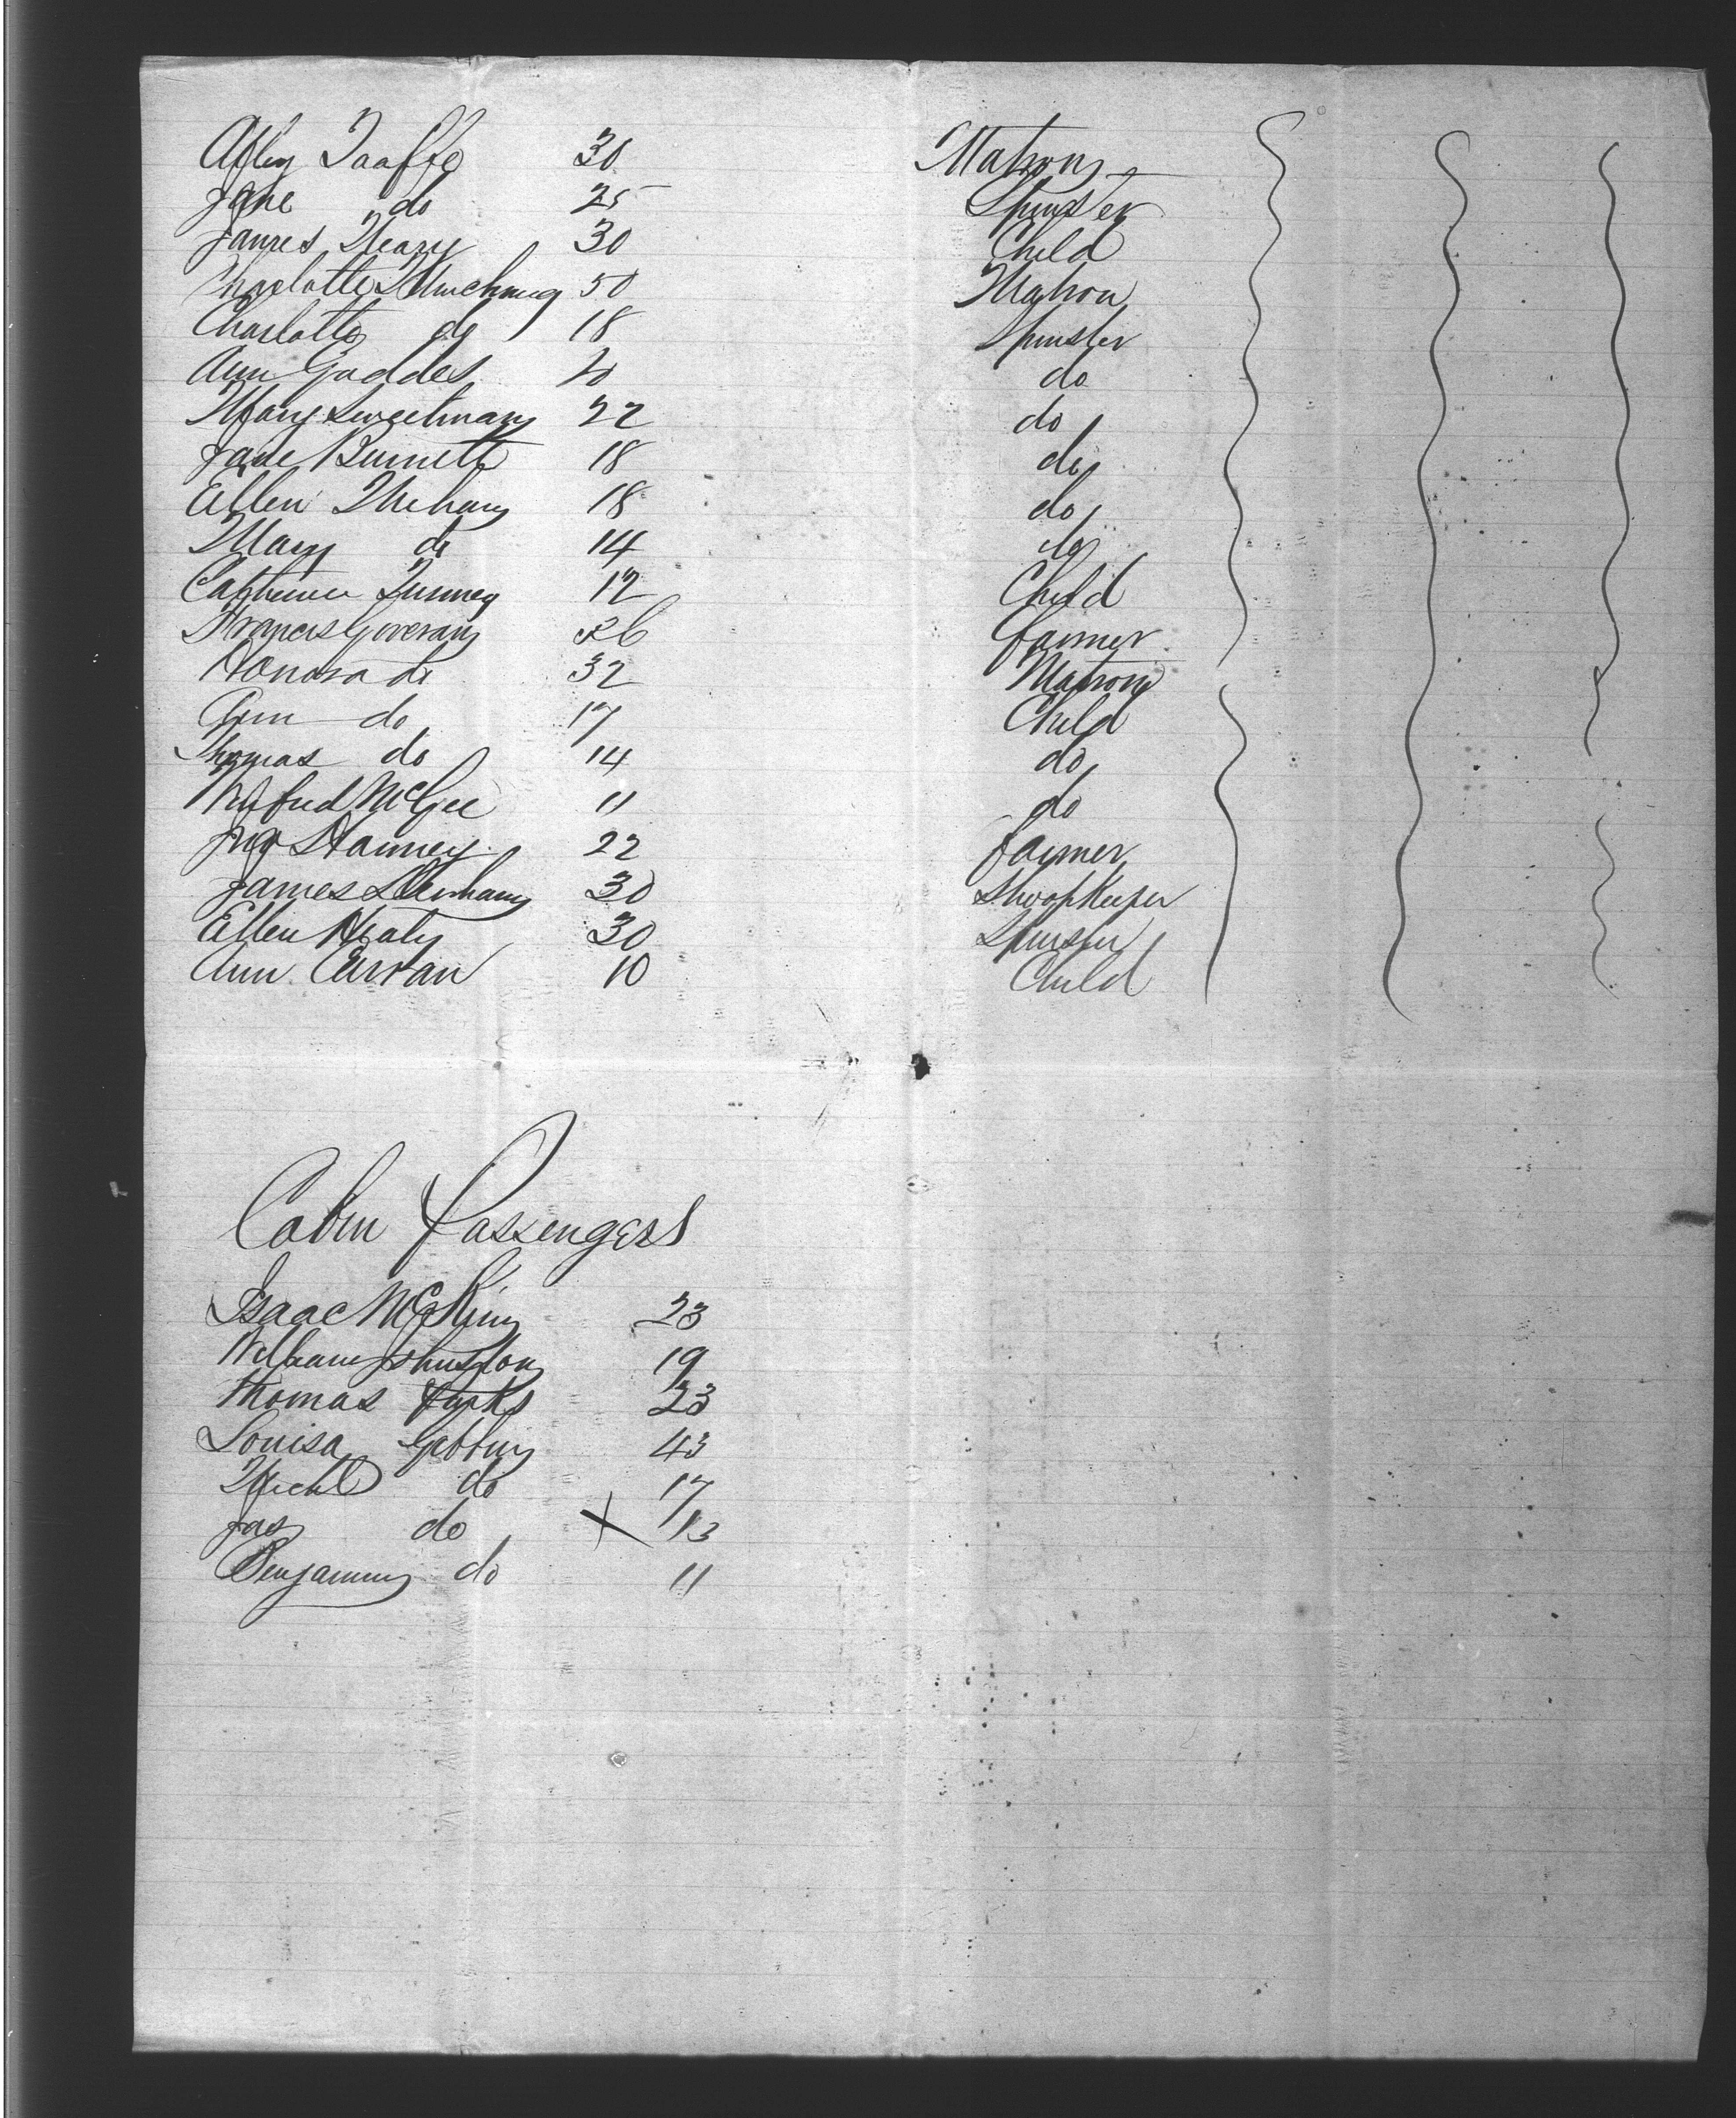 Taaffe 30 Matron
Jane do 25 Spinster
James Neary 30 Child
Charlotte 50 Matron
Charlotte do 18 Spinster
Ann Gaddes 20 do
Mary Sweetman 22 do
Jane Burnett 18 do
Ellen Mehan 18 do
Mary do 14 do
Catherine 12 Child
Francis Goveran 36 farmer
Honora do 32 Matron
Ann do 17 Child
Thomas do 14 do
McGee 11 do
Jno 22 farmer
James 30 ShoopKeeper
Ellen Healy 30 Spinster
Ann Curran 10 Child
Cabin Passengers
Isaac McKim 23
William Johnston 19
Thomas Parks 23
Louisa 43
Michl do 17
Jas do X 13
Benjamin do 11